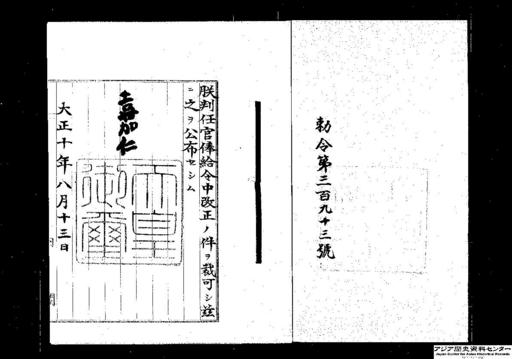 勅令第三百九十三號
朕判任官俸給令中改正ノ件ヲ裁可シ茲
ニ之ヲ公布セシム
嘉仁
天皇御璽
大正十年八月十三日
アジア歴史資料センター
Japan Center for Asian Historical Records